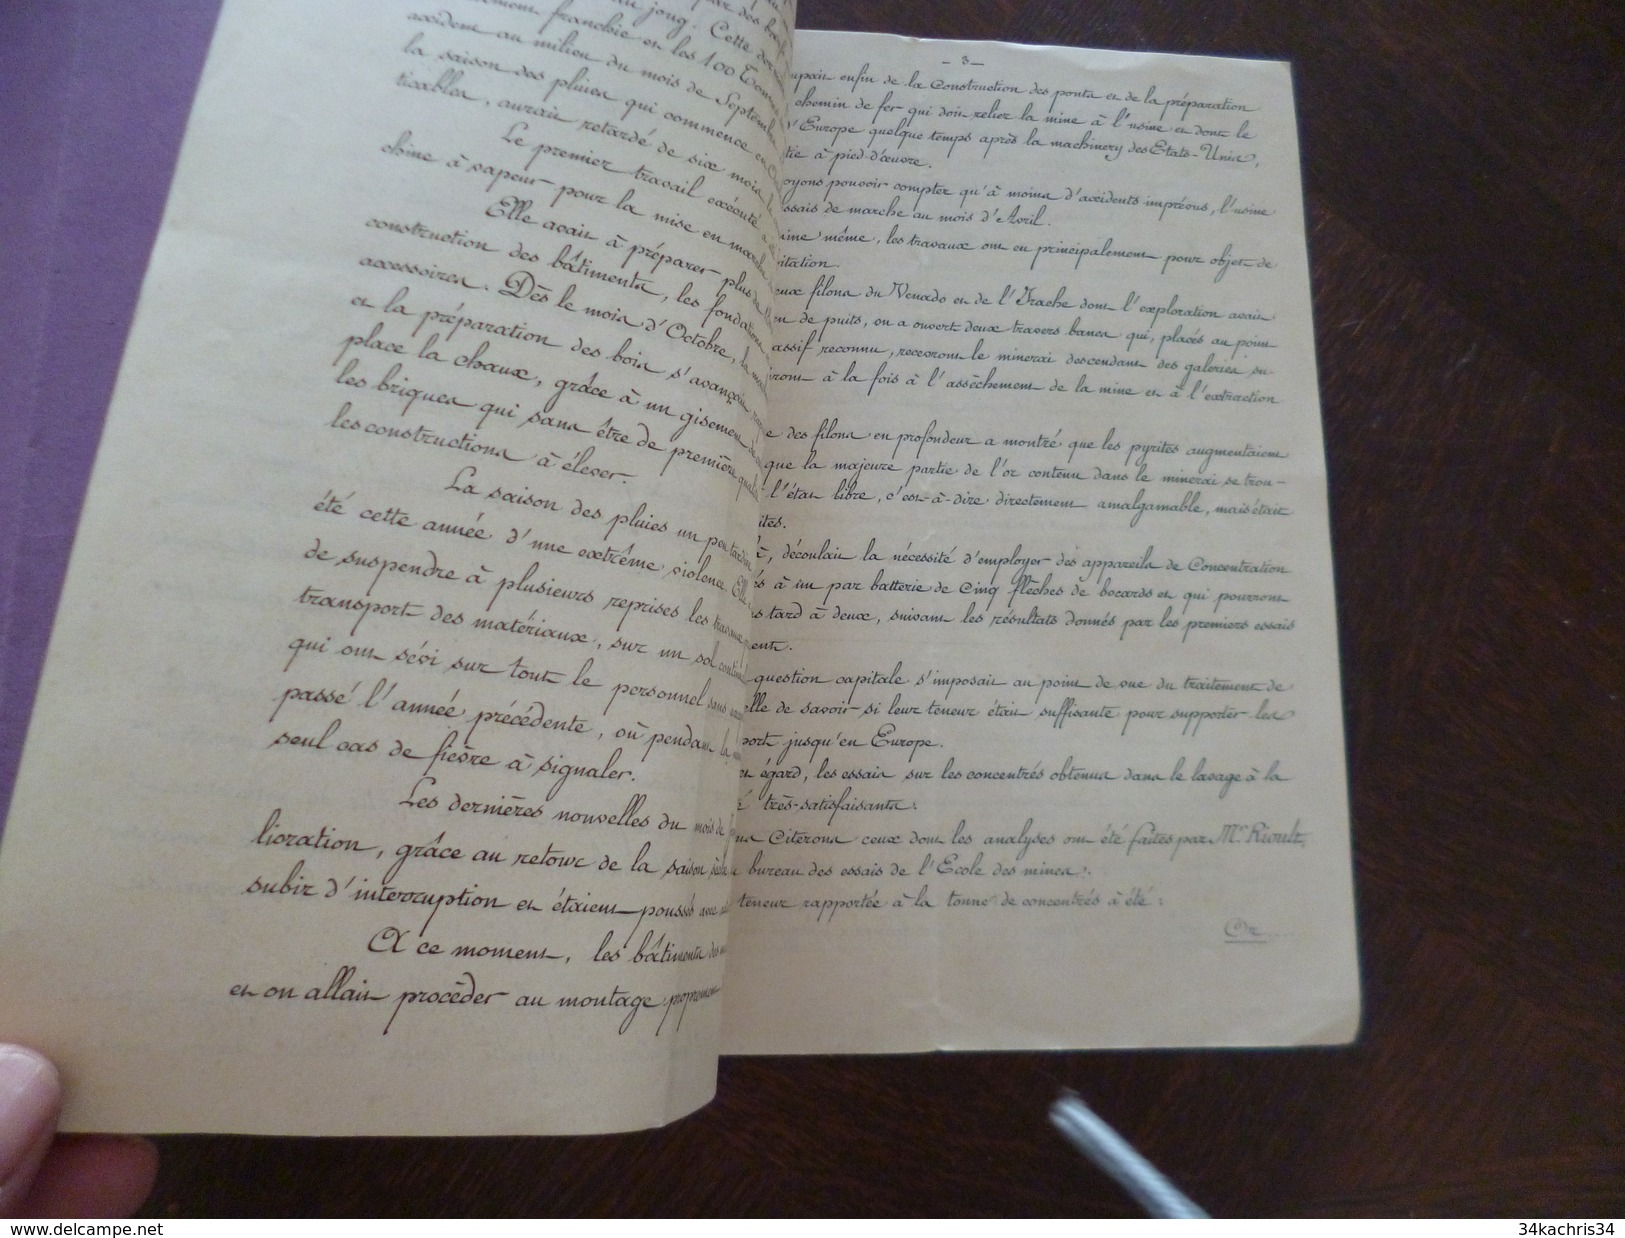 par des bœufs
au joug. Cette
franchie et les 100 Tonnes
accident au milieu du mois de Septembre
la saison des pluies qui commence en
ticables, aurait retardé de six mois
Le premier travail exécuté a
chine à vapeur pour la mise en marche
Elle avait à préparer plus de
construction des bâtiments, les fondations
accessoires. Dès le mois d'Octobre, la
et la préparation des bois s'avançait
place la chaux, grâce à un gisement
les briques qui sans être de première
les constructions à élever.
La saison des pluies un peu tardive
été cette année d'une extrême violence. Elle
de suspendre à plusieurs reprises les travaux
transport des matériaux, sur un sol
qui ont sévi sur tout le personnel sans
passé l'année précédente, où pendant la
seul cas de fièvre à signaler.
Les dernières nouvelles du mois de
lioration, grâce au retour de la saison sèche
subir d'interruption et étaient poussés avec
A ce moment, les bâtiments des
et on allait procéder au montage proprement
- 3 -
enfin de la Construction des ponts et de la préparation
chemin de fer qui doit relier la mine à l'usine et dont le
d'Europe quelque temps après la machinery des Etats-Unis,
tie à pied d'œuvre.
oyons pouvoir compter qu'à moins d'accidents imprévus, l'usine
ssais de marche au mois d'Avril.
ine même, les travaux ont eu principalement pour objet de
itation.
eux filons du Venado et de l'Irache dont l'exploration avait
en de puits, on a ouvert deux travers bancs qui, placés au point
assif reconnu, recevront le minerai descendant des galeries su-
iront à la fois à l'assèchement de la mine et à l'extraction
e des filons en profondeur a montré que les pyrites augmentaient
que la majeure partie de l'or contenu dans le minerai se trou-
l'état libre, c'est-à-dire directement amalgamable, mais était
ites.
, découlait la nécessité d'employer des appareils de Concentration
és à un par batterie de Cinq flèches de bocards et qui pourront
s tard à deux, suivant les résultats donnés par les premiers essais
ent.
question capitale s'imposait au point de vue du traitement de
elle de savoir si leur teneur était suffisante pour supporter les
port jusqu'en Europe.
et égard, les essais sur les concentrés obtenus dans le lavage à la
é très-satisfaisants.
us Citerons ceux dont les analyses ont été faites par Mr. Rioult,
u bureau des essais de l'Ecole des mines.
teneur rapportée à la tonne de concentrés a été :
Or
www.delcampe.net
34kachris34